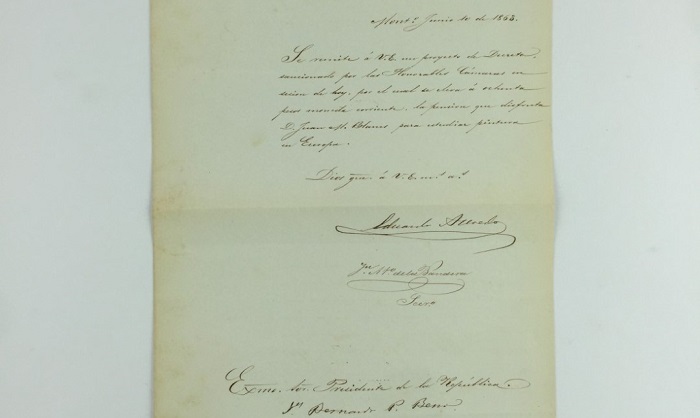 Montº Junio 10 de 1863.
Se remite á V.E. un proyecto de Decreto,
sancionado por las Honorables Cámaras en
sesion de hoy, por el cual se eleva á ochenta
pesos moneda corriente, la pension que disfruta
D. Juan M. Blanes para estudiar pintura
en Europa.
Dios gue. á V.E. ms. as.
Eduardo Acevedo
Juan Ma. de la
Secro.
Exmo. Sor. Presidente de la República.
Dn. Bernardo P. Berro.